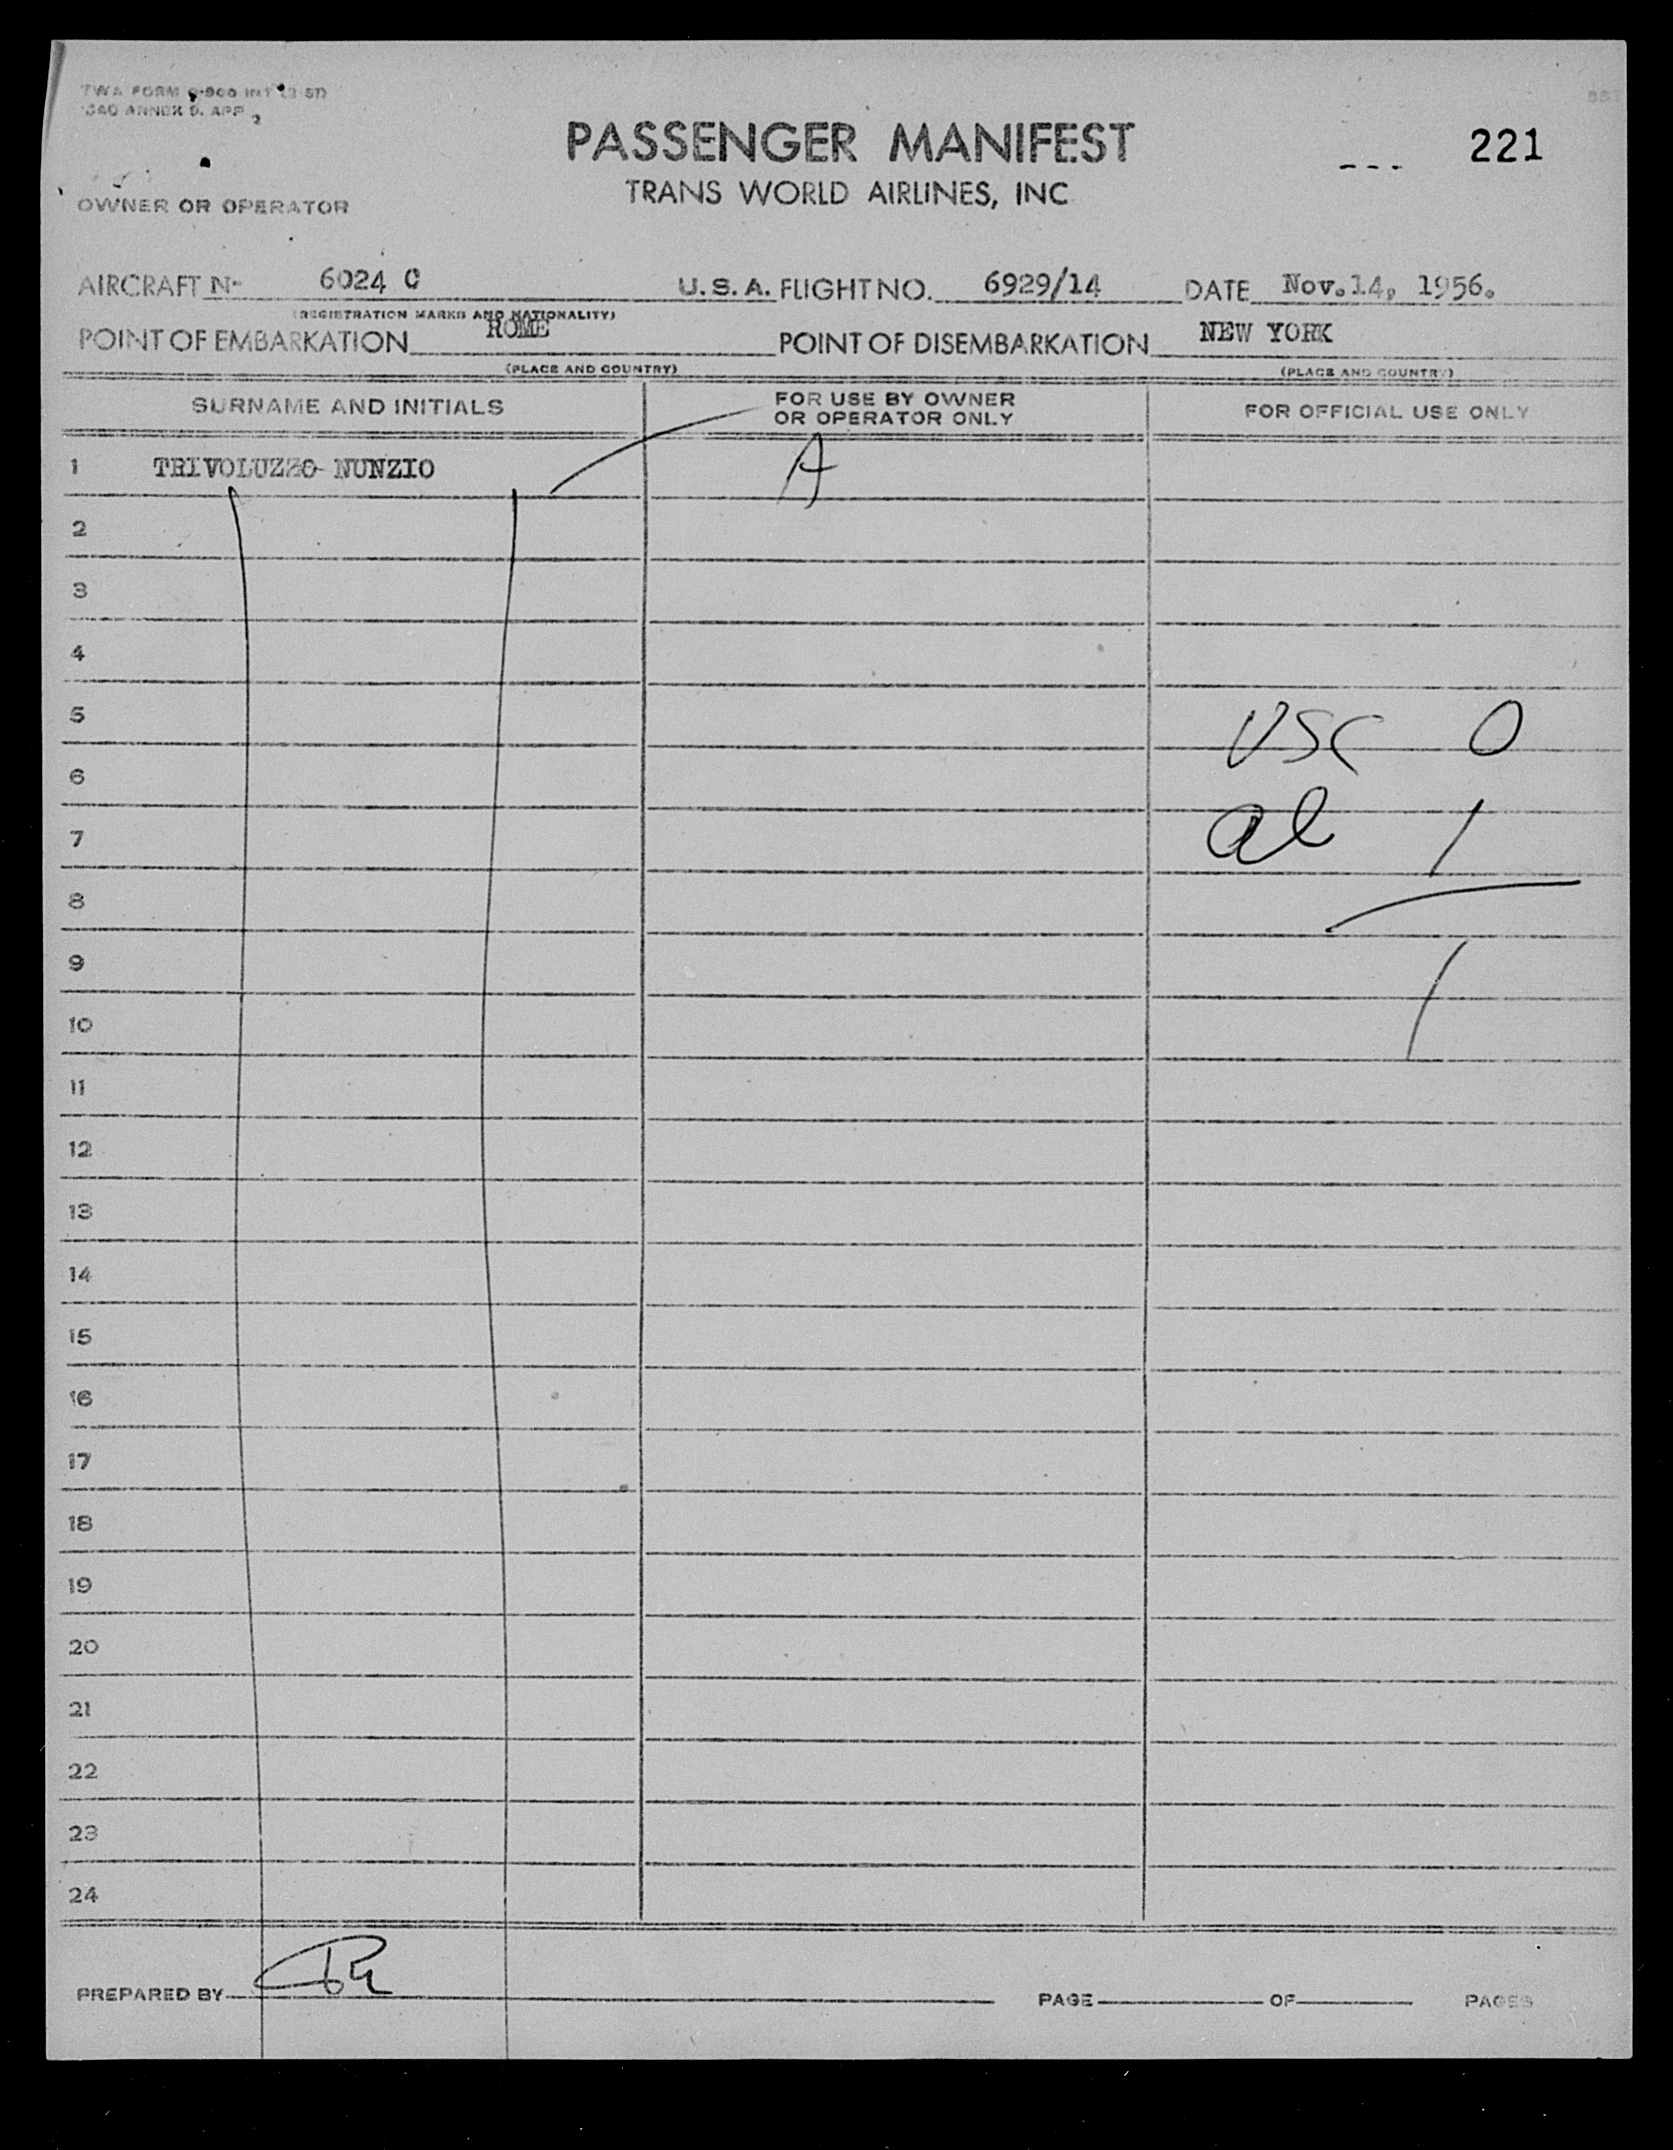 TWA FORM
ICAO ANNEX 9. APP 2
PASSENGER MANIFEST
221
TRANS WORLD AIRLINES, INC
OWNER OR OPERATOR
AIRCRAFT N- 6024 C U.S.A. FLIGHT NO. 6929/14 DATE Nov.14, 1956.
(REGISTRATION MARKS AND NATIONALITY)
POINT OF EMBARKATION ROME POINT OF DISEMBARKATION NEW YORK
(PLACE AND COUNTRY) (PLACE AND COUNTRY)
SURNAME AND INITIALS FOR USE BY OWNER OR OPERATOR ONLY FOR OFFICIAL USE ONLY
1 TRIVOLUZZO NUNZIO A
2
3
4
5 USC 0
6
7 al 1
8
9 1
10
11
12
13
14
15
16
17
18
19
20
21
22
23
24
PREPARED BY PAGE OF PAGES